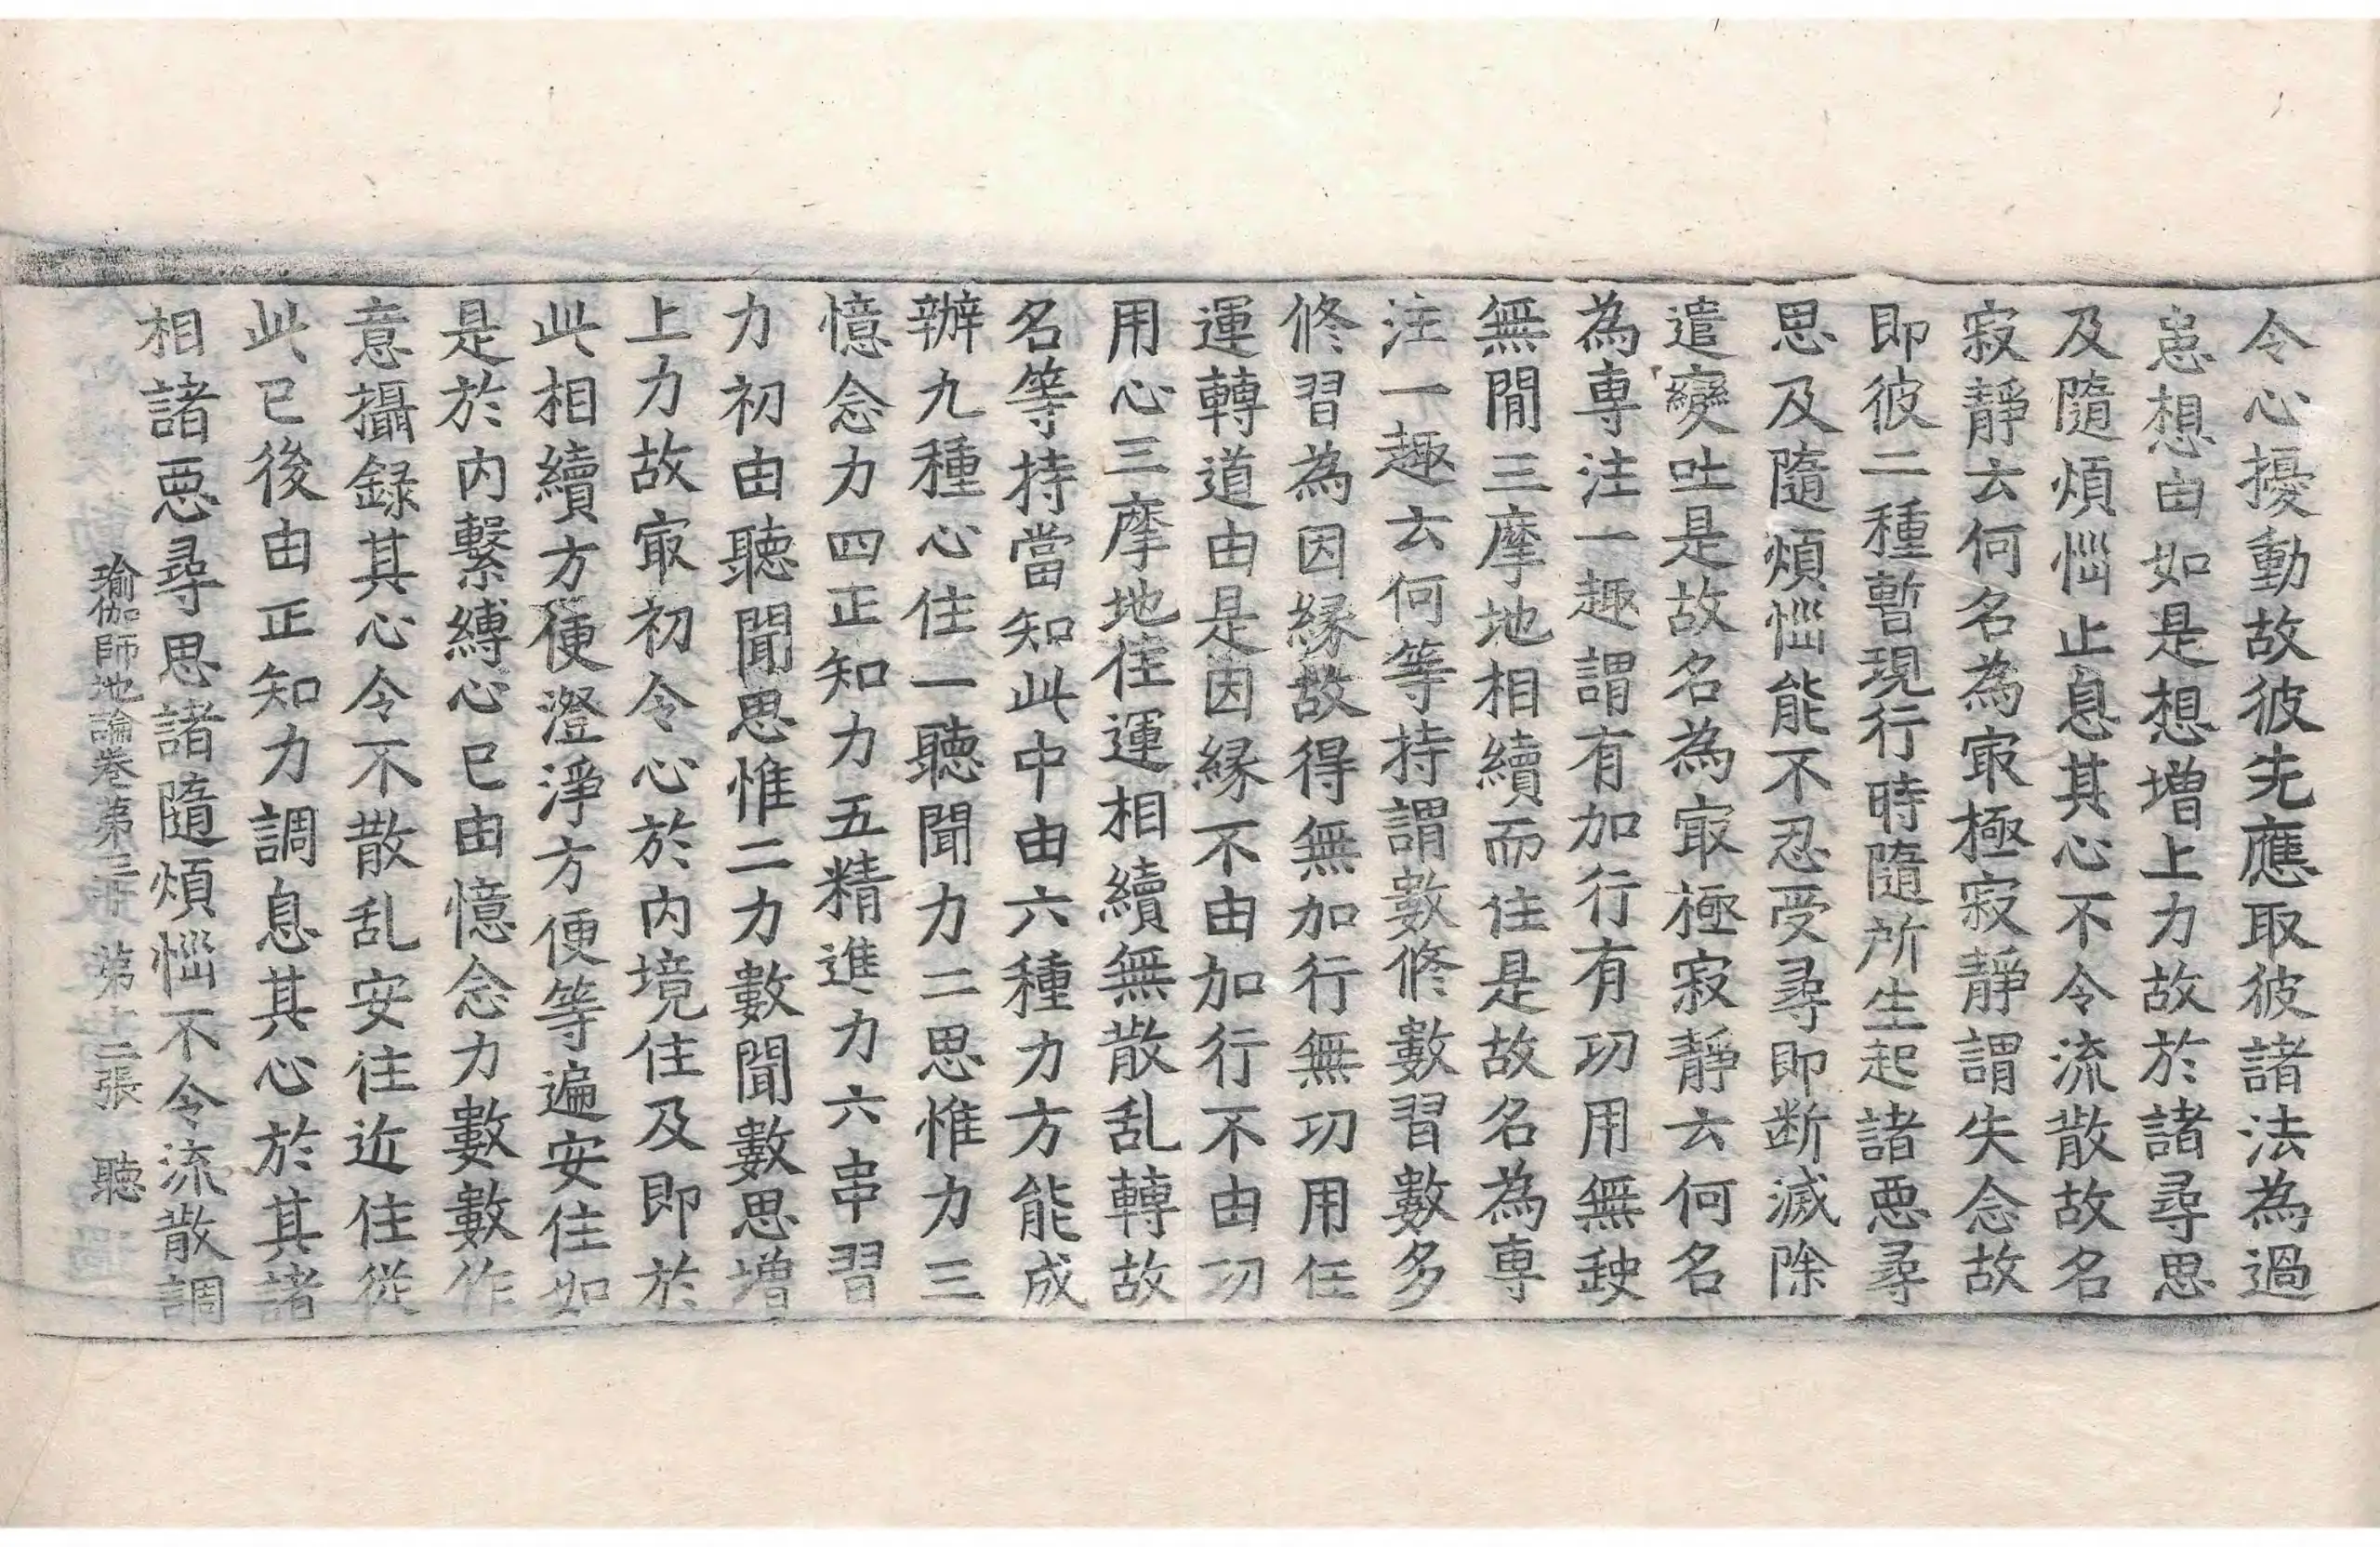 令心擾動故彼先應取彼諸法為過
患想由如是想增上力故於諸尋思
及隨煩惱止息其心不令流散故名
寂靜云何名為㝡極寂靜謂失念故
即彼二種暫現行時隨所生起諸恶尋
思及隨煩惱能不忍受尋即断滅除
遣變吐是故名為㝡極寂靜云何名
為専注一趣謂有加行有功用無𡙇
無間三摩地相續而住是故名為専
注一趣云何等持謂數修數習數多
修習為因緣故得無加行無功用任
運轉道由是因緣不由加行不由功
用心三摩地任運相續無散乱轉故
名等持當知此中由六種力方能成
辦九種心住一聽聞力二思惟力三
憶念力四正知力五精進力六串習
力初由聽聞思惟二力數聞數思增
上力故㝡初令心於內境住及即於
此相續方便澄淨方便等遍安住如
是於內繫縛心已由憶念力數數作
意攝録其心令不散乱安住近住從
此已後由正知力調息其心於其諸
相諸恶尋思諸隨煩惱不令流散調
瑜伽師地論卷第三十 第十二張 聽